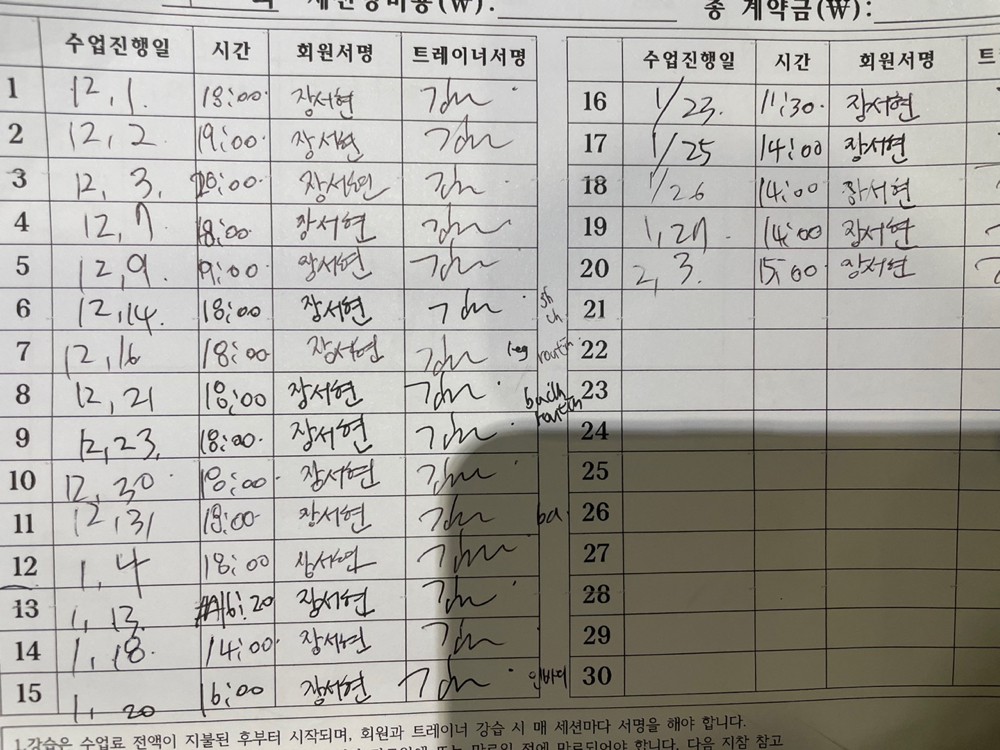 총 계약금(₩):
수업진행일 시간 회원서명 트레이너서명
1 12, 1. 18:00 장서현
2 12, 2 19:00 장서현
3 12, 3. 20:00 장서현
4 12, 7 18:00 장서현
5 12, 9. 19:00 장서현
6 12, 14. 18:00 장서현
7 12, 16 18:00 장서현 leg routin
8 12, 21 18:00 장서현 back
9 12, 23. 18:00 장서현 routin
10 12, 30 18:00 장서현
11 12, 31 19:00 장서현 ba
12 1, 4 18:00 장서현
13 1, 13. 16:20 장서현
14 1, 18. 14:00 장서현
15 1, 20 16:00 장서현 인바디
수업진행일 시간 회원서명 트
16 1/23. 11:30 장서현
17 1/25 14:00 장서현
18 1/26 14:00 장서현
19 1, 27 14:00 장서현
20 2, 3. 15:00 장서현
21
22
23
24
25
26
27
28
29
30
1.강습은 수업료 전액이 지불된 후부터 시작되며, 회원과 트레이너 강습 시 매 세션마다 서명을 해야 합니다.
만료되어야 합니다. 다음 지참 참고